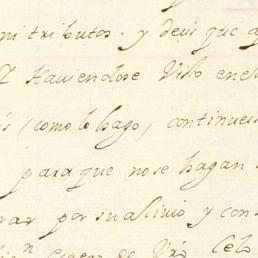 ni tributos. y decir que
Haviendose Visto en el
(como lo hago) continue
para que no se hagan
por su alivio y con
de Vrâ Celo